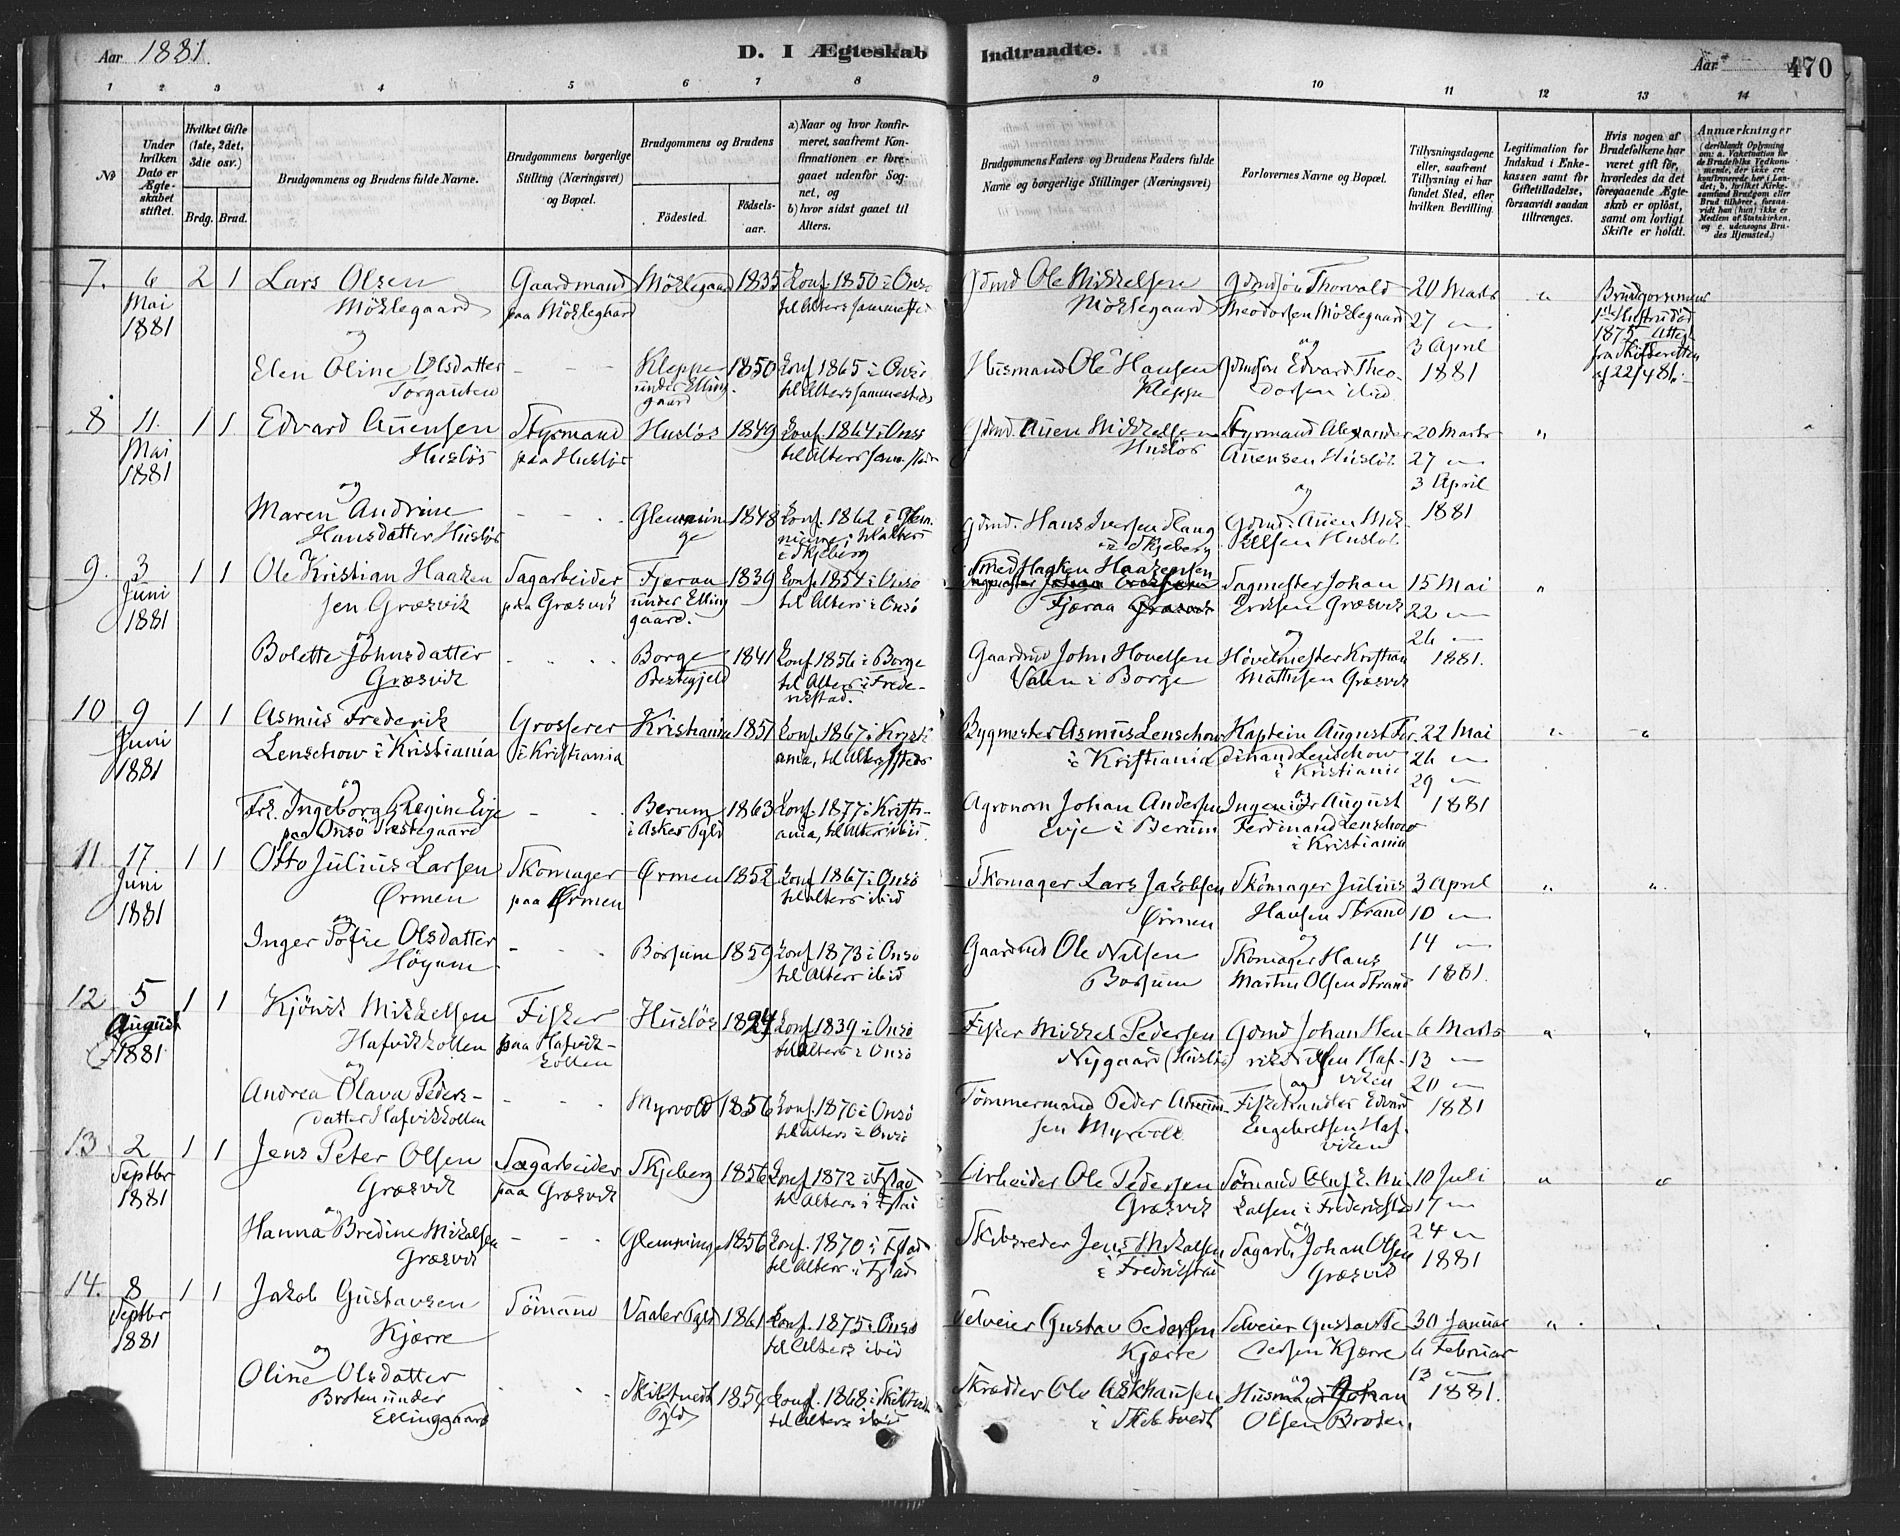 Aar 1881.
D. I Ægteskab Indtraadte.
Aar 470
1 2 3 4 5 6 7 8 9 10 11 12 13 14
No
Under hvilken Dato er Ægteskabet stiftet.
Hvilket Gifte (1ste, 2det, 3die osv.)
Brdg. Brud.
Brudgommens og Brudens fulde Navne.
Brudgommens borgerlige Stilling (Næringsvei) og Bopæl.
Brudgommens og Brudens
Fødested.
Fødselsaar.
a) Naar og hvor konfirmeret, saafremt Konfirmationen er foregaaet udenfor Sognet, og
b) hvor sidst gaaet til Alters.
Brudgommens Faders og Brudens Faders fulde Navne og borgerlige Stillinger (Næringsvei)
Forlovernes Navne og Bopæl.
Tillysningsdagene eller, saafremt Tillysning ei har fundet Sted, efter hvilken Bevilling.
Legitimation for Indskud i Enkekassen samt for Giftetilladelse, forsaavidt saadan tiltrænges.
Hvis nogen af Brudefolkene har været gift før, hvorledes da det foregaaende Ægteskab er opløst, samt om lovligt Skifte er holdt.
Anmærkninger
7. 6 Mai 1881 2 1 Lars Olsen Möklegaard
Gaardmand paa Möklegaard
Möklegaard 1835 Konf. 1850 i Onsö til Alters sammesteds
Gdmd Ole Mikkelsen Möklegaard
Gdmdsön Thorvald Theodorsen Möklegaard
20 Marts 27 — 3 April 1881
"
Brudgommens 1ste Hustru död 1875. Attest fra Skifteretten af 22/4 81.
og
Elen Oline Olsdatter Torgauten
- - -
Kleppe under Ellinggaard 1850 Konf. 1865 i Onsö til Alters sammesteds
Husmand Ole Hansen Kleppe
og Gdmdsön Edvard Theodorsen ibid.
8 11. Mai 1881 1 1 Edvard Auensen Huslös
Styrmand paa Huslös
Huslös 1849 Konf. 1864 i Onsö til Alters samsteds
Gdmd. Auen Mikkelsen Huslös
Styrmand Alexander Auensen Huslös
20 Marts 27 — 3 April 1881
"
og
Maren Andrine Hansdatter Huslös
- - -
Glemminge 1848 Konf. 1862 i Glemminge; til Alters i Skjeberg
Gdmd. Hans Iversen Haug i Skjeberg
og Gdmd. Auen Mikkelsen Huslös
9. 3 Juni 1881 1 1 Ole Kristian Haakensen Græsvik
Sagarbeider paa Græsvik
Fjæraa under Ellinggaard. 1839 Konf. 1854 i Onsö til Alters i Onsö
Smed Haaken Haakensen Fjæraa
Sagmester Johan Eriksen Græsvik
15 Mai 22 — 26 — 1881.
"
og
Bolette Johnsdatter Græsvik
- - -
Borge Prestegjeld 1841 Konf. 1856 i Borge til Alters i Frederikstad.
Gaardmd John Hovelsen Valen i Borge
og Hövelmester Kristian Mathisen Græsvik
10 9 Juni 1881 1 1 Asmus Frederik Lenschow i Kristiania
Grosserer i Kristiania
Kristiania 1851 Konf. 1867 i Kristiania, til Alters ibid.
Bygmester Asmus Lenschow i Kristiania
Kaptein August Ferdinand Lenschow i Kristiania
22 Mai 26 — 29 — 1881
" "
og
Frk. Ingeborg Regine Evje paa Onsö Præstegaard
- - -
Berum i Asker Pgld 1863 Konf. 1877 i Kristiania, til Alters ibid.
Agronom Johan Andersen Evje i Berum
Ingeniör August Ferdinand Lenschow i Kristiania
11. 17 Juni 1881 1 1 Otto Julius Larsen Ørmen
Skomager paa Ørmen
Ørmen 1852 Konf. 1867 i Onsö til Alters ibid
Skomager Lars Jakobsen Ørmen
Skomager Julius Hansen Strand
3 April 10 — 14 — 1881.
" "
og
Inger Sofie Olsdatter Höyum
- - -
Borsum 1859 Konf. 1873 i Onsö til Alters ibid
Gaardmd Ole Nilsen Borsum
og Skomager Hans Martin Olsen Strand
12 5 August 1881 1 1 Kjönik Mikkelsen Hafvikkollen
Fisker paa Hafvikkollen
Huslös 1824 Konf. 1839 i Onsö til Alters i Onsö
Fisker Mikkel Pedersen Nygaard (Huslös)
Gdmd Johan Henrik Olsen Hafviken
6 Marts 13 — 20 — 1881
" "
og
Andrea Olava Pedersdatter Hafvikkollen
- - -
Myrvold 1856 Konf. 1870 i Onsö til Alters i Onsö
Tömmermand Peder Andersen Myrvold
og Fiskehandler Edvard Engebretsen Hafviken
13. 2 Septbr 1881 1 1 Jens Peter Olsen Græsvik
Sagarbeider paa Græsvik
Skjeberg 1856 Konf. 1872 i F.stad til Alters i F.stad
Arbeider Ole Pedersen Græsvik
Sömand Oluf E. Mikalsen i Frederikstad
10 Juli 17 — 24 — 1881
" "
og
Hanna Bredine Mikalsen Græsvik
- - -
Glemminge 1856 Konf. 1870 i F.stad til Alters i F.stad
Skibsreder Jens Mikalsen i Fredrikstad
og Sagarb. Johan Olsen Græsvik
14. 8 Septbr 1881 1 1 Jakob Gustavsen Kjærre
Sömand
Vaaler Pgld 1861 Konf. 1875 i Onsö til Alters ibid
Selveier Gustav Pedersen Kjærre
Selveier Gustav Pedersen Kjærre
30 Januar 6 Februar 13 — 1881.
" "
og
Oline Olsdatter Braten under Ellinggaard
- - -
Skibtvedt Pgld 1854 Konf. 1868 i Skibtvedt til Alters ibid
Skrædder Ole Askhausen i Skibtvedt
og Husmand Johan Olsen Braten.